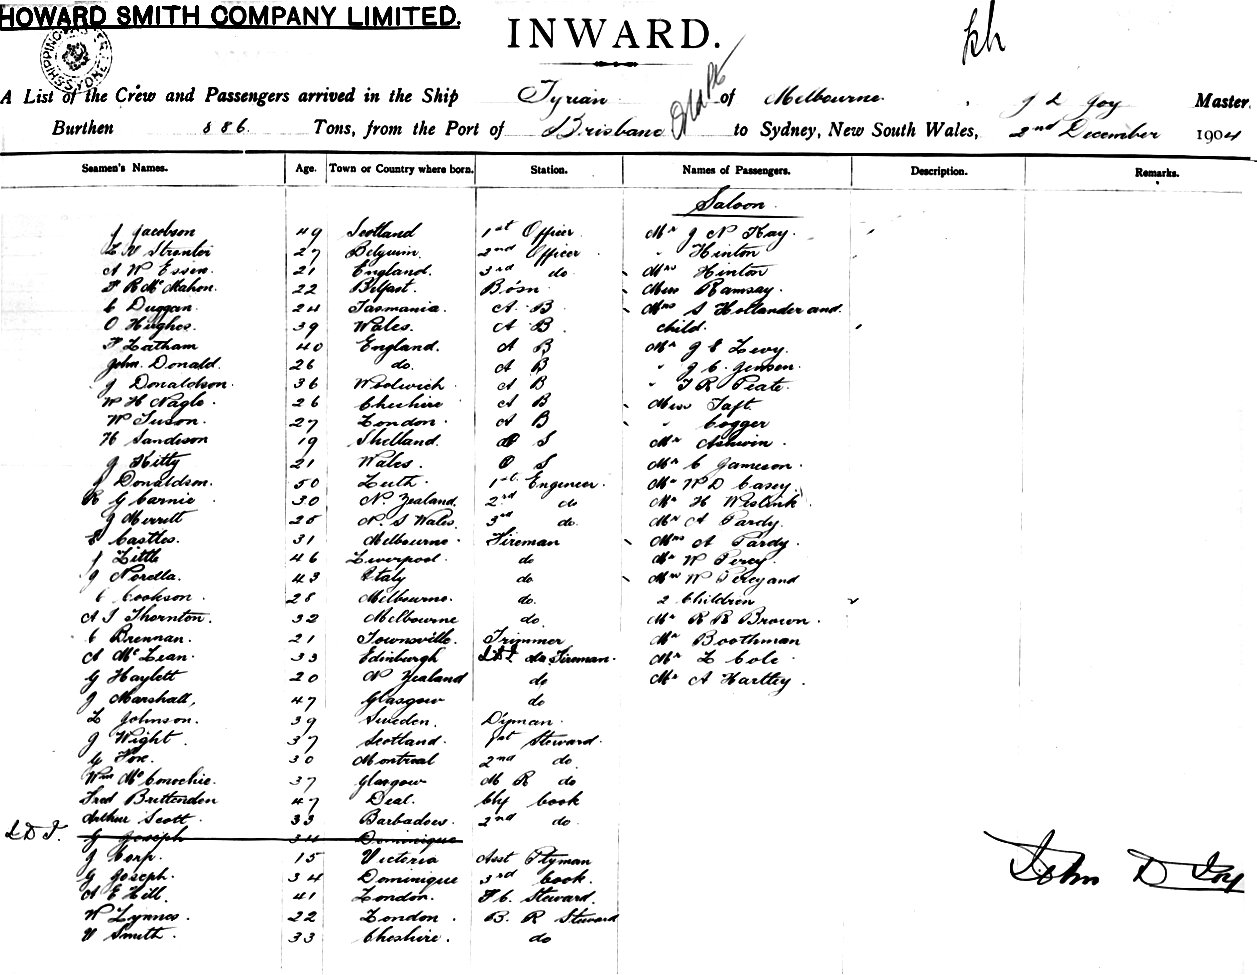 HOWARD SMITH COMPANY LIMITED.
INWARD.
A List of the Crew and Passengers arrived in the Ship Tyrian of Melbourne. Master.
Burthen 886 Tons, from the Port of Brisbane to Sydney, New South Wales, 2nd December 1904
Seamen's Names. Age. Town or Country where born. Station. Names of Passengers. Description. Remarks.
Saloon.
J Jacobson 49 Scotland 1st Officer Mr J N Kay.
27 Belgium. 2nd Officer " Hinton
A W Essen. 21 England. 3rd do Mrs Hinton
F R McMahon. 22 Belfast. Bosn Miss Ramsay.
C Duggan. 24 Tasmania. A B Mrs S Hollander and
O Hughes. 39 Wales. A B child.
F Latham 40 England. A B Mr J E Levy.
John Donald. 26 do. A B " J C Jensen.
J Donaldson. 36 Woolwich A B " T R Peate.
W H Nagle. 26 Cheshire A B Miss Taft.
W Tuson. 27 London. A B " Cogger
H Sandison 19 Shetland O S Mr Ashwin.
J Kitty 21 Wales. O S Mr C Jameson.
J Donaldson. 50 Leith. 1st Engineer. Mr W D Casey.
R G Carnie 30 N. Zealand. 2nd do Mr H
J Merrett N. S Wales. 3rd do. Mr A Pardy.
E Castles. 31 Melbourne. Fireman Mrs A Pardy.
J Little 46 Liverpool. do Mr W Percy.
J Norella. 43 Italy do. Mrs W Percy and
C Cookson. 28 Melbourne. do. 2 Children
A J Thornton. 32 Melbourne do. Mr R R Brown.
C Brennan. 21 Townsville. Trimmer Mr Boothman
A McLean. 33 Edinburgh Fireman. Mr L Cole.
G Haylett 20 N Zealand do Mr A Hartley.
J Marshall, 47 Glasgow do
L Johnson. 39 Sweden. Dyman.
J Wight 37 Scotland. 1st Steward.
G Fox. 30 Montreal 2nd do
Wm McConochie. 37 Glasgow M R do
Fred Bruttenden 47 Deal. Chf Cook
Arthur Scott. 33 Barbadoes. 2nd do.
L D T. G Joseph 34 Dominique
J Corp. 15 Victoria Asst Ptyman
G Joseph. 34 Dominique 3rd Cook.
A E Hill. 41 London. F C. Steward.
W Lynnes. 22 London. B. R Steward
V Smith. 33 Cheshire. do
John D Joy